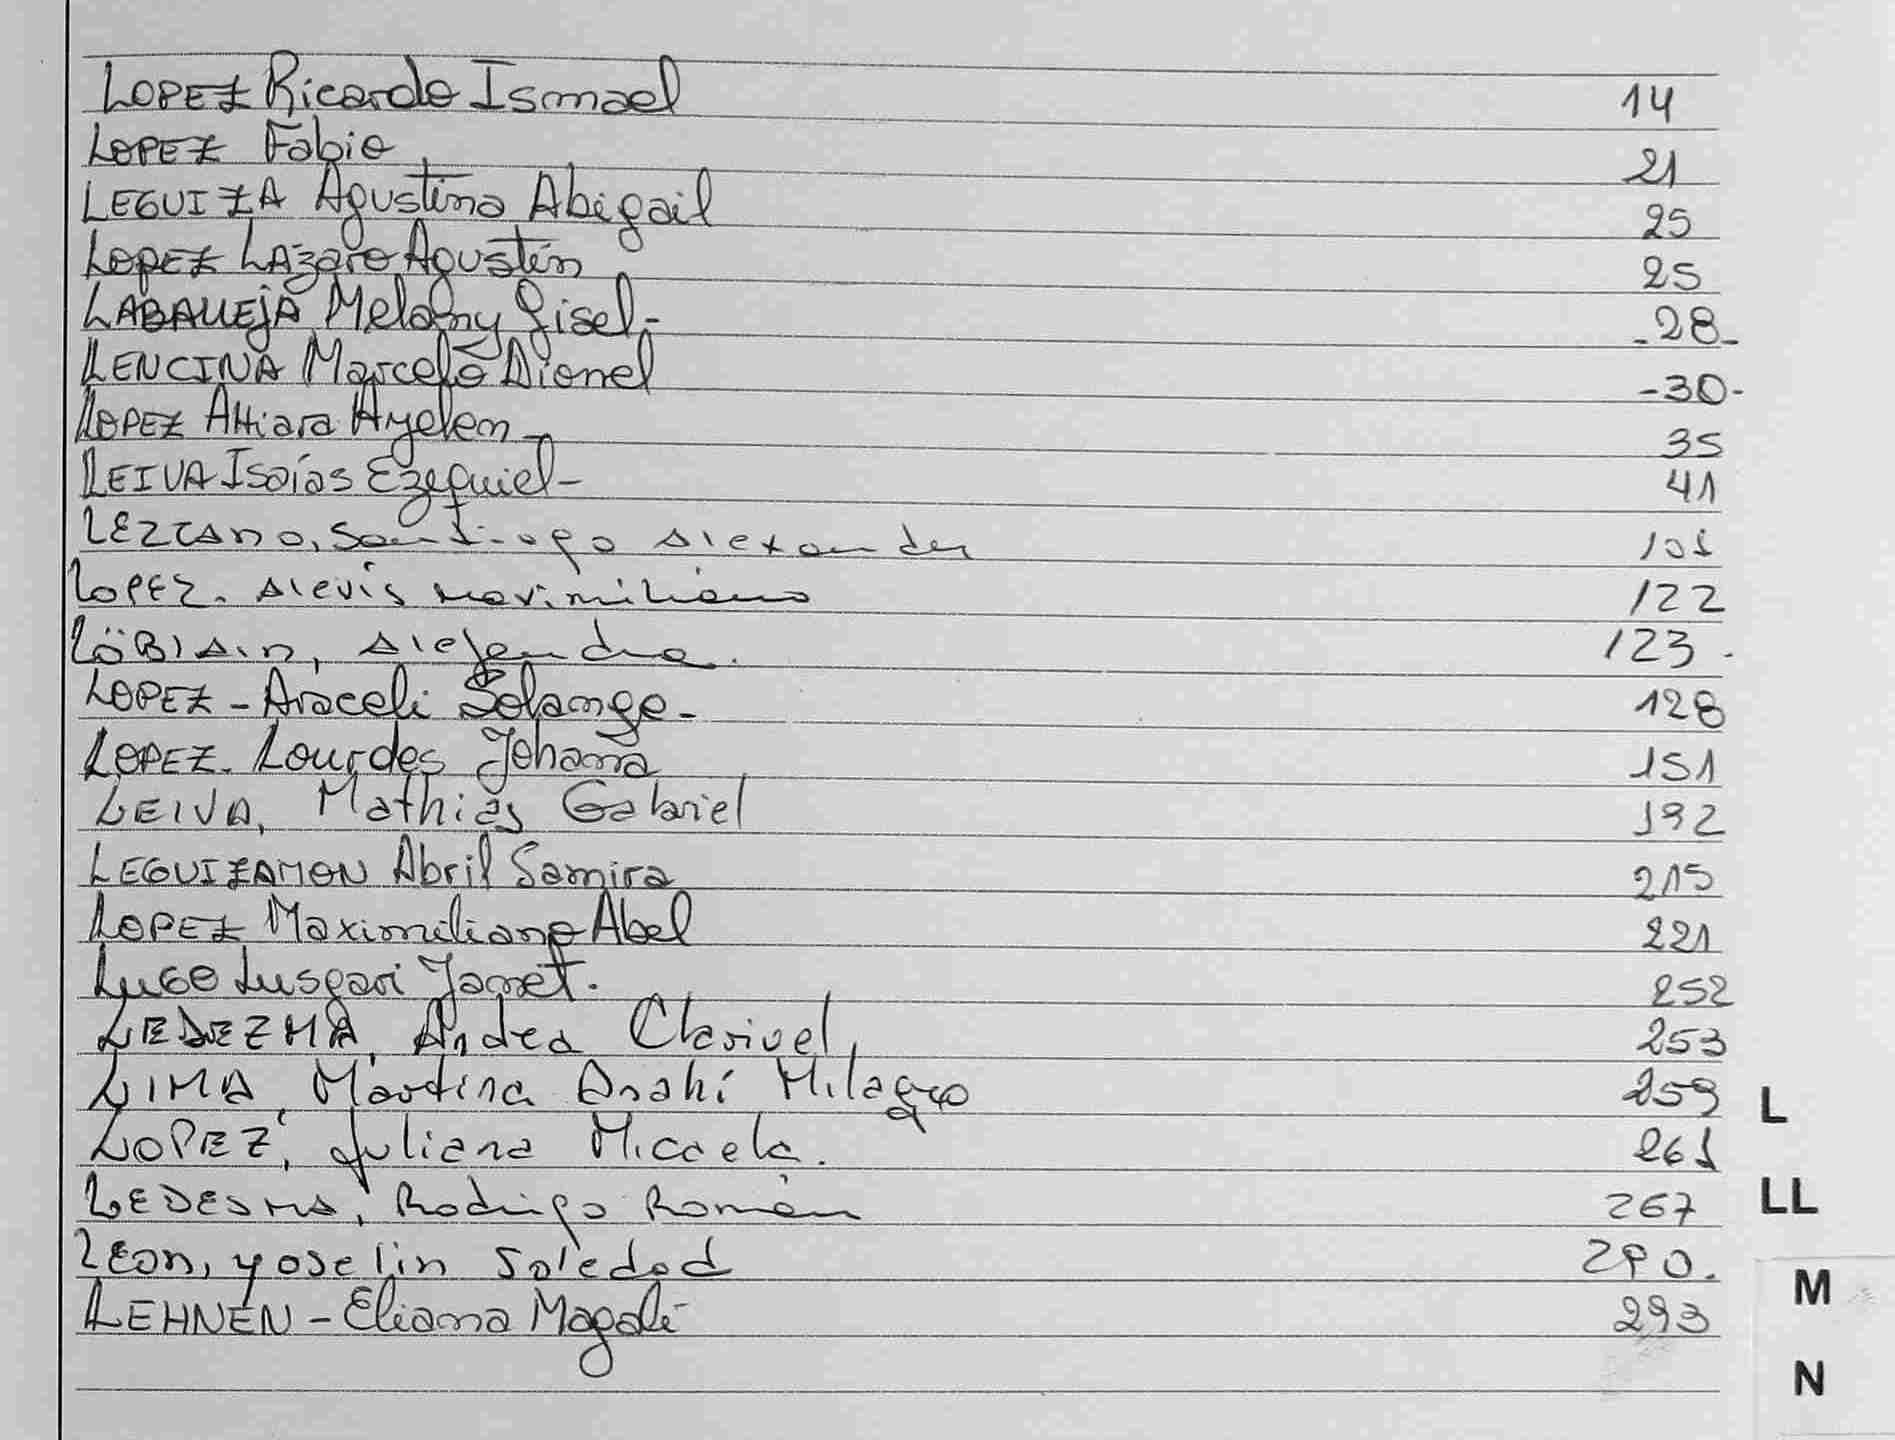 LOPEZ Ricardo Ismael 14
LOPEZ Fabio 21
LEGUIZA Agustina Abigail 25
LOPEZ LAzaro Agustín 25
LABALLEJA Melany Gisel- -28-
LENCINA Marcelo Dionel -30-
LOPEZ Ahiara Ayelen- 35
LEIVA Isaías Ezequiel- 41
LEZCANO, Santiago Alexander 101
LOPEZ. Alexis Maximiliano 122
LÖBLAIN, Alejandra. 123.
LOPEZ - Araceli Solange- 128
LOPEZ. Lourdes Johana 151
LEIVA, Mathias Gabriel 192
LEGUIZAMON Abril Samira 215
LOPEZ Maximiliano Abel 221
LUGO Lusgari Janet. 252
LEDEZMA, Andea Clarivel 253
LIMA, Martina Anahí Milagro 259
LOPEZ, Juliana Micaela. 261
LEDESMA, Rodrigo Román 267
LEON, yoselin Soledad 290.
LEHNEN - Eliana Magalí 293
L
LL
M
N